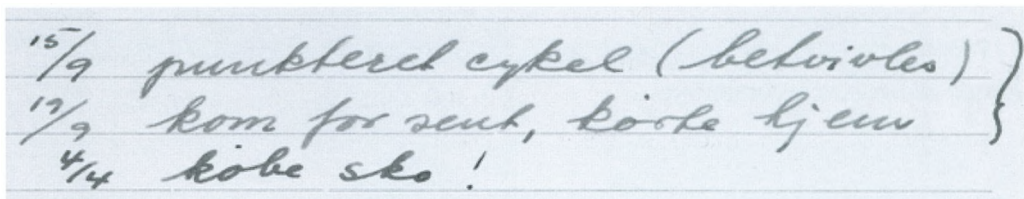 15/9 punkteret cykel (betvivles)
19/9 kom for sent, kørte hjem
4/4 købe sko!